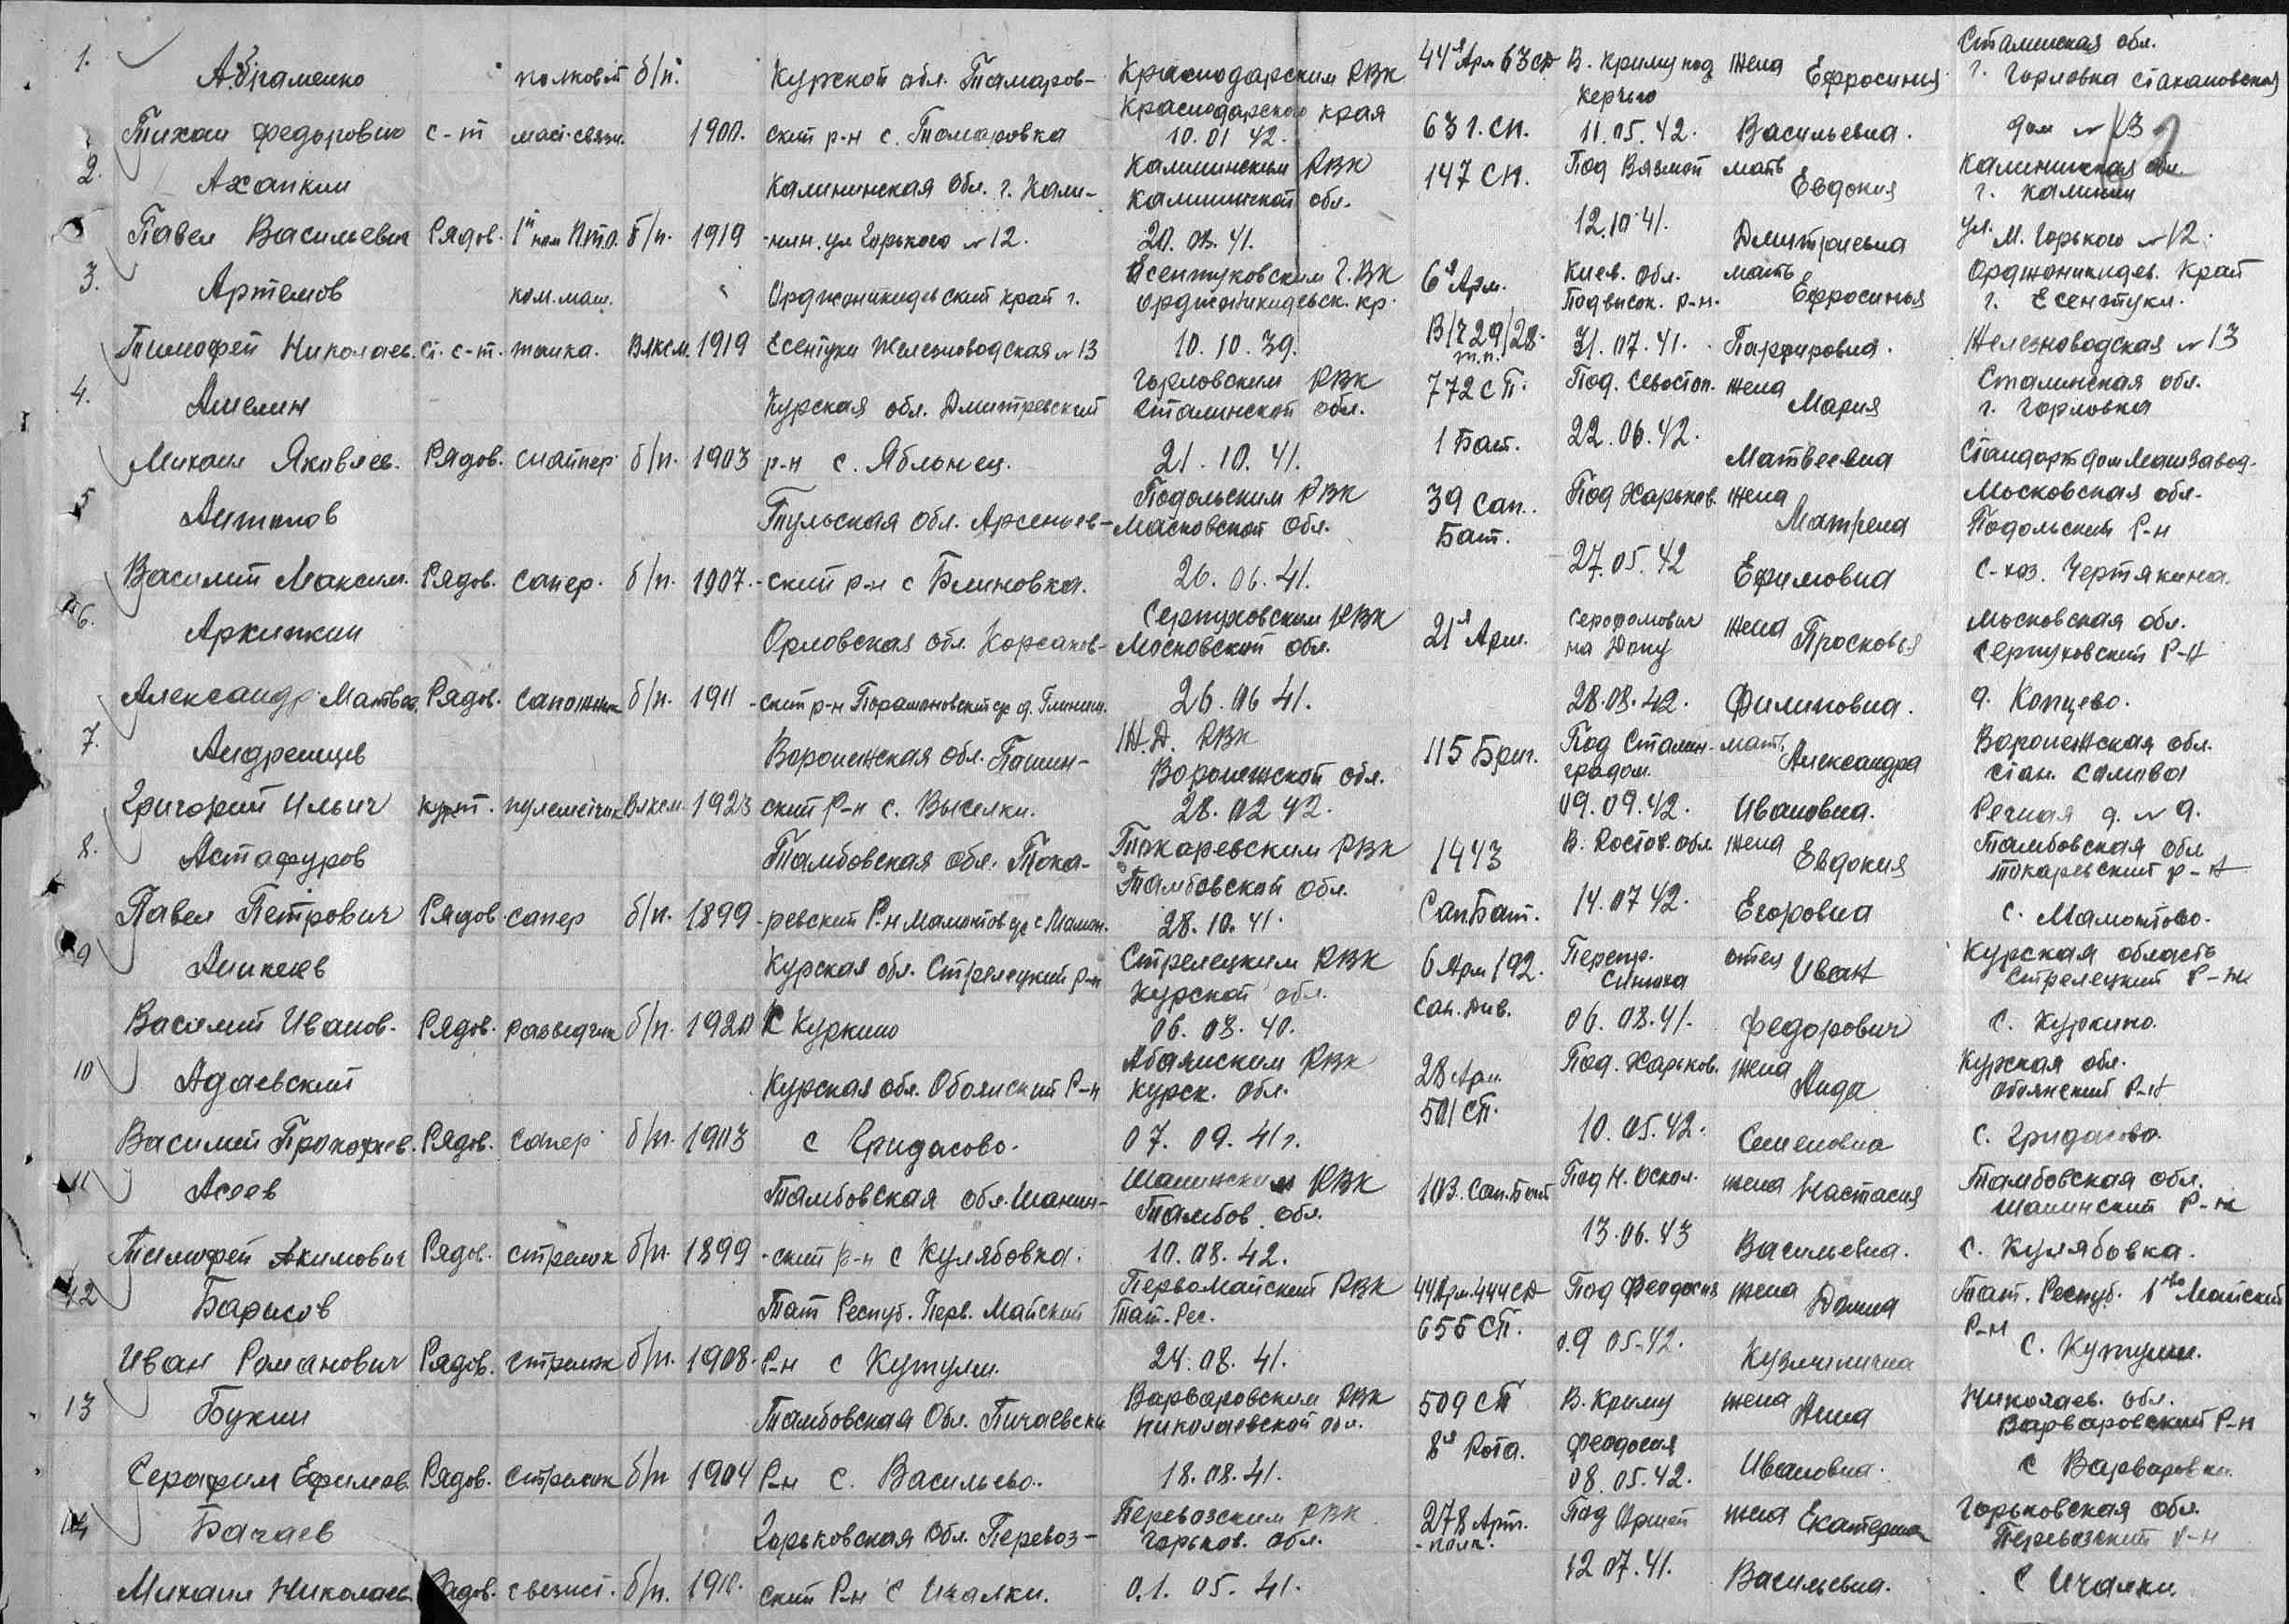 1. Абраменко полковой б/п. Курской обл. Тамаров- Краснодарским РВК 44я Арм 63 сд В. Криму под жена Ефросиния Сталинская обл.
Краснодарского края Керчью г. Горловка Стахановская
Тихон Федорович с-т маст. связи. 1900. ский р-н с. Томаровка 10.01 42. 631. СП. 11.05.42. Васильевна. дом №
2. Ахапкин Калининская обл. г. Кали- Калининским РВК 147 СП. Под Вязмой мать Евдокия Калининская обл.
Калининской обл. г. Калинин
Павел Васильевич Рядов. 1й ном ПТО. б/п. 1919 -нин. ул Горького №12. 20.03.41. 12.10.41. Дмитриевна ул. М. Горького №12.
3. Артемов ком. маш. Орджоникидевский край г. Есентуковским Г.ВК 6я Арм. Киев. обл. мать Ефросинья Орджоникидев. Край
Орджоникидевск. кр. Подвысок. р-н. г. Есентуки.
Тимофей Николаев. ст. с-т. танка. Влксм. 1919 Есентуки Железноводская №13 10.10.39. В/ч 29/28. т.п. 31.07.41. Парфировна. Железноводская №13
4. Амелин Курская обл. Дмитревский Горловским РВК 772 СП. Под. Севостоп. жена Мария Сталинская обл.
Сталинской обл. г. Горловка
Михаил Яковлев. Рядов. снайпер б/п. 1903 р-н с. Яблонец. 21.10.41. 1 Бат. 22.06.42. Матвеевна Стандарт дом Машзавод.
5 Антонов Тульская обл. Арсеньев- Подольским РВК 39 Сап. Под Харьков. жена Матрена Московская обл.
Московской обл. Бат. Подольский Р-н
Василий Максим. Рядов. Сапер. б/п. 1907. -ский р-н с Блиновка. 26.06.41. 27.05.42 Ефимовна С-хоз. Чертякина.
6. Архипкин Орловская обл. Корсаков- Серпуховским РВК 21я Арм. жена Просковья Московская обл.
Московской обл. на Дону Серпуховский Р-н
Александр Матвеев. Рядов. Сапожник б/п. 1911 -ский р-н 26.06 41. 28.08.42. Филиповна. д. Копцево.
7. Андреищев Воронежская обл. Пашин- Ж.Д. РВК 115 Бриг. Под Сталин- мать Александра Воронежская обл.
Воронежской обл. градом. стан. Сомово
Григорий Ильич курт. пулеметчик Влксм. 1923 ский Р-н с. Выселки. 28.02 42. 09.09.42. Ивановна. Речная д. №9.
8. Астафуров Тамбовская обл. Тока- Токаревским РВК 1443 В. Ростов. обл. жена Евдокия Тамбовская обл
Тамбовской обл. Токаревский р-н
Павел Петрович Рядов. сапер б/п. 1899 -ревский Р-н Мамонтов с/с с Мамон. 28.10.41. Сап.Бат. 14.07 42. Егоровна с. Мамонтово.
9 Аникеев Курская обл. Стрелецкий р-н Стрелецким РВК 6 Арм/92. Перепр. отец Иван Курская область
Курской обл. Сап. Див. Синюха Стрелецкий Р-н
Василий Иванов. Рядов. разведчик б/п. 1920 с Куркино 06.08.40. 06.08.41. Федорович С. Куркино.
10 Адаевский Курская обл. Обоянский Р-н Абаянским РВК 28 Арм. Под. Харьков. жена Аида Курская обл.
Курск. обл. 501 СП. Обоянский Р-н
Василий Прокофьев. Рядов. Сапер б/п. 1903 с Гридасово. 07.09.41г. 10.05.42. Семеновна С. Гридасово.
11 Асеев Тамбовская обл. Шапин- Шапинским РВК 103. Сап.Бат Под Н. Оскол. жена Настасия Тамбовская обл.
Тамбов. обл. Шапинский Р-н
Тимофей Акимович Рядов. стрелок б/п. 1899 -ский р-н с Кулябовка. 10.08.42. 13.06.43 Васильевна. С. Кулябовка.
12 Барисов Тат Респуб. Перв. Майский Первомайский РВК 44Арм. 444сд Под Феодосия жена Домна Тат. Респуб. 1во Майский
Тат. Рес. 656 СП. Р-н
Иван Романович Рядов. стрелок б/п. 1908. Р-н с Кутуши. 24.08.41. 09 05.42. Кузминична с. Кутуши.
13 Букин Тамбовская Обл. Пичаевски Варваровским РВК 509 СП В. Криму жена Анна Николаев. обл.
Николаевской обл. 8я Рота. Феодосия Варваровский Р-н
Серафим Ефимов. Рядов. стрелок б/п 1904 Р-н С. Васильево. 18.08.41. 08.05.42. Ивановна. с Варваровка.
14 Бачаев Горьковская обл. Перевоз- Перевозским РВК 278 Арт. Под Оршей жена Екатерина Горьковская обл.
Горьков. обл. -полк. Перевозский Р-н
Михаил Николаев. Рядов. связист. б/п. 1910. ский Р-н с Ичалки. 01.05.41. 12 07.41. Васильевна. с Ичалки.